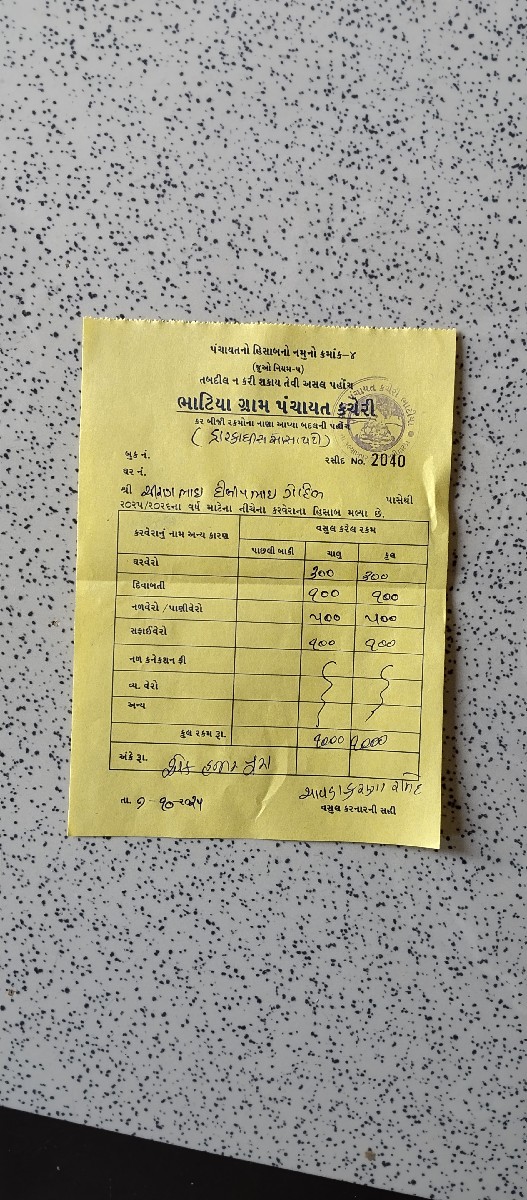 પંચાયતનો હિસાબનો નમુનો ક્રમાંક-૪
(જૂઓ નિયમ-૫)
તબદીલ ન કરી શકાય તેવી અસલ પહોંચ
ભાટિયા ગ્રામ પંચાયત કચેરી
કર બીજી રકમોના નાણા આપ્યા બદલની પહોંચ
બુક નં.
રસીદ No. 2040
ઘર નં.
શ્રી પાસેથી
૨૦૨૫/૨૦૨૬ના વર્ષ માટેના નીચેના કરવેરાના હિસાબ મળ્યા છે.
કરવેરાનું નામ અન્ય કારણ વસુલ કરેલ રકમ
પાછલી બાકી ચાલુ કુલ
ઘરવેરો ૩૦૦ ૩૦૦
દિવાબત્તી ૧૦૦ ૧૦૦
નળવેરો / પાણીવેરો ૫૦૦ ૫૦૦
સફાઈવેરો ૧૦૦ ૧૦૦
નળ કનેકશન ફી
વ્ય. વેરો
અન્ય
કુલ રકમ રૂા. ૧૦૦૦ ૧૦૦૦
અંકે રૂા. એક હજાર પુરા
તા. ૭-૧૦-૨૦૨૫
વસુલ કરનારની સહી